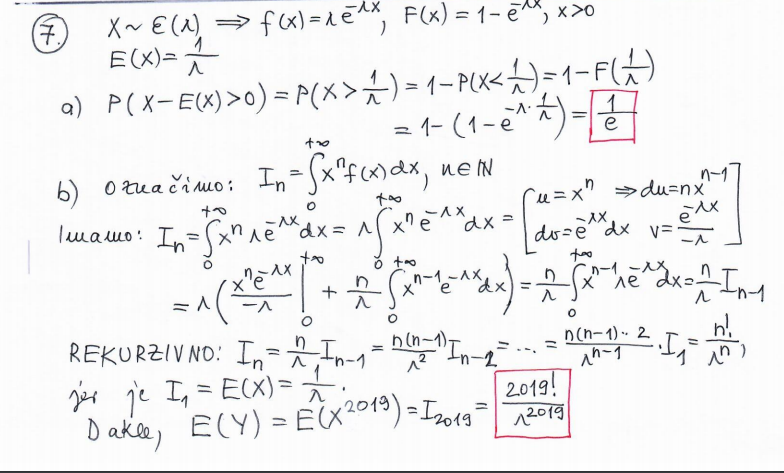 7. X ~ ε(λ) ⟹ f(x) = λe^{-λx}, F(x) = 1 - e^{-λx}, x>0
E(X) = 1/λ
a) P(X - E(X) > 0) = P(X > 1/λ) = 1 - P(X < 1/λ) = 1 - F(1/λ)
= 1 - (1 - e^{-λ·1/λ}) = 1/e
b) Označimo: I_n = ∫_0^{+∞} x^n f(x) dx, n∈ℕ
Imamo: I_n = ∫_0^{+∞} x^n λe^{-λx} dx = λ ∫_0^{+∞} x^n e^{-λx} dx = [u = x^n ⇒ du = nx^{n-1}
dv = e^{-λx} dx v = e^{-λx}/-λ]
= λ( x^n e^{-λx}/-λ |_0^{+∞} + n/λ ∫_0^{+∞} x^{n-1} e^{-λx} dx ) = n/λ ∫_0^{+∞} x^{n-1} λe^{-λx} dx = n/λ I_{n-1}
REKURZIVNO: I_n = n/λ I_{n-1} = n(n-1)/λ^2 I_{n-2} = ... = n(n-1)··2/λ^{n-1} · I_1 = n!/λ^n,
jer je I_1 = E(X) = 1/λ.
Dakle, E(Y) = E(X^{2019}) = I_{2019} = 2019!/λ^{2019}